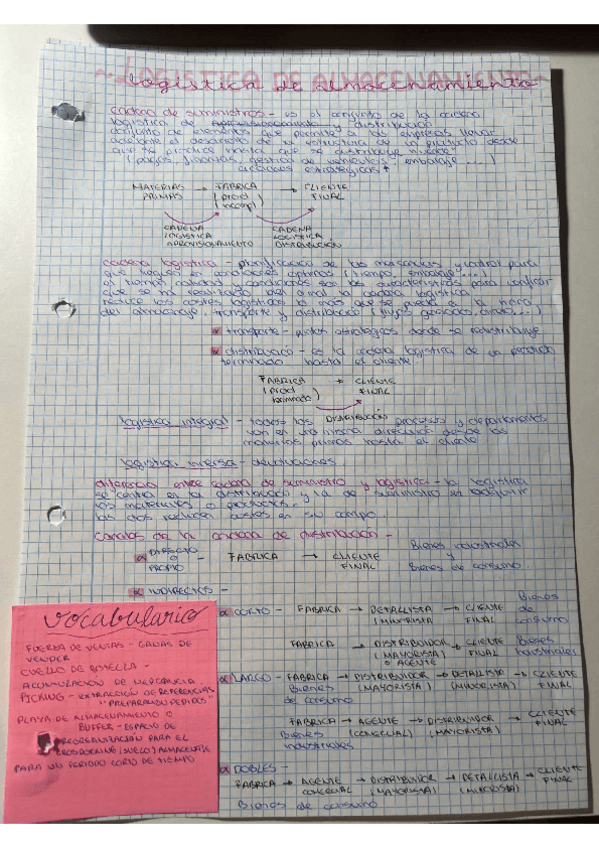 ~LOGISTICA DE ALMACENAMIENTO~
cadena de suministros - es el conjunto de la cadena
logística de aprovisionamiento y distribución
conjunto de elementos que permite a las empresas llevar
adelante el desarrollo de la estructura de un producto desde
que se produce hasta que se distribuye
acciones estratégicas
MATERIAS PRIMAS → FABRICA → CLIENTE FINAL
CADENA LOGISTICA APROVISIONAMIENTO
CADENA LOGISTICA DISTRIBUCIÓN
cadena logística - planificación de las mercancías y control para
que lleguen en condiciones optimas (tiempo, embalaje, ...)
el tiempo, calidad y condiciones son las características para verificar
que se ha realizado bien o mal la cadena logística
reduce los costes logísticos lo más que se pueda a la hora
del almacenaje, transporte y distribución
transporte - puntos estratégicos donde se redistribuye
distribución - es la cadena logística de un producto
terminado hasta el cliente
FABRICA (prod terminado) → CLIENTE FINAL
DISTRIBUCIÓN
logística integral - todos los procesos y departamentos
van en una misma dirección desde las
materias primas hasta el cliente
logística inversa - devoluciones
diferencia entre cadena de suministro y logística - la logística
se centra en la distribución y la de suministro en adquirir
los materiales o productos.
las dos reducen costes en su campo.
canales de la cadena de distribución -
DIRECTO O PROPIO - FABRICA → CLIENTE FINAL Bienes industriales y Bienes de consumo
INDIRECTOS -
CORTO - FABRICA → DETALLISTA (MINORISTA) → CLIENTE FINAL Bienes de consumo
FABRICA → DISTRIBUIDOR (MAYORISTA) O AGENTE → CLIENTE FINAL Bienes industriales
LARGO - FABRICA → DISTRIBUIDOR (MAYORISTA) → DETALLISTA (MINORISTA) → CLIENTE FINAL
Bienes de consumo
FABRICA → AGENTE (COMERCIAL) → DISTRIBUIDOR (MAYORISTA) → CLIENTE FINAL
Bienes industriales
DOBLES -
FABRICA → AGENTE COMERCIAL → DISTRIBUIDOR (MAYORISTA) → DETALLISTA (MINORISTA) → CLIENTE FINAL
Bienes de consumo
vocabulario
FUERZA DE VENTAS - GANAS DE
VENDER
CUELLO DE BOTELLA -
ACUMULACION DE MERCANCIA.
PICKING - EXTRACCIÓN DE REFERENCIAS
"PREPARANDO PEDIDOS"
PLAYA DE ALMACENAMIENTO O
BUFFER - ESPACIO DE
PARA EL
(SUELO) ALMACENAJE
PARA UN PERIODO CORTO DE TIEMPO